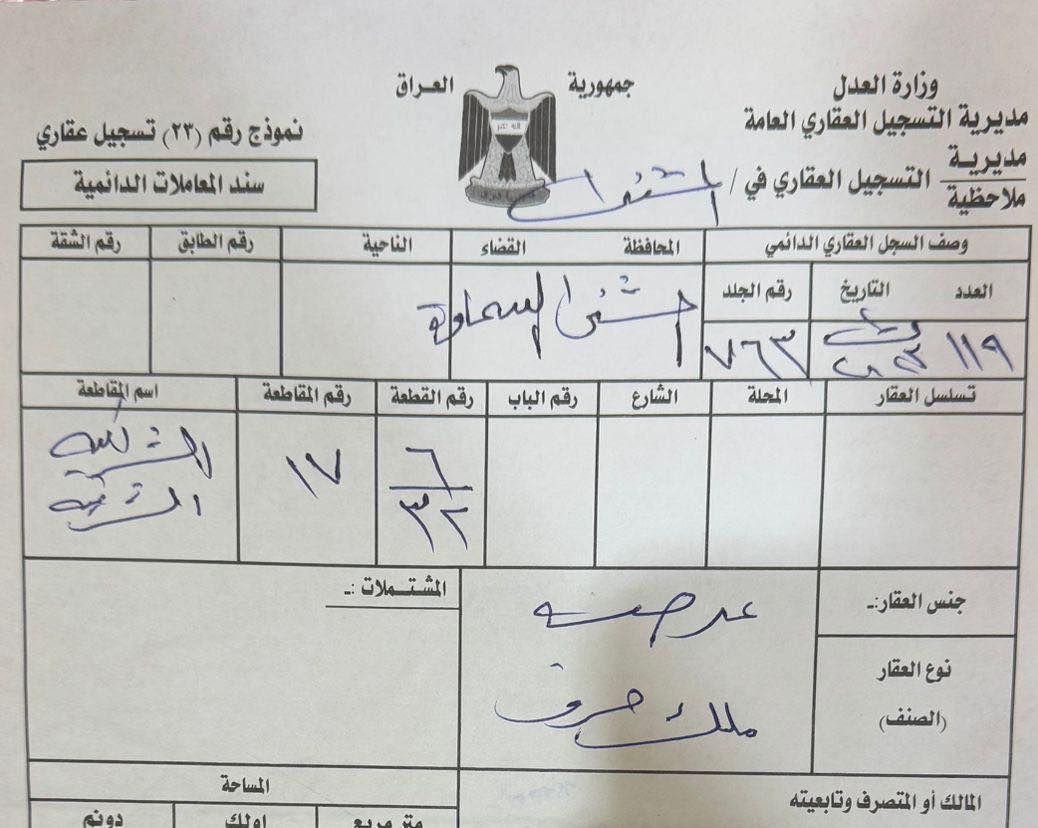 وزارة العدل
مديرية التسجيل العقاري العامة
مديرية
ملاحظية
التسجيل العقاري في / المثنى
جمهورية العراق
الله اكبر
نموذج رقم (٢٣) تسجيل عقاري
سند المعاملات الدائمية
وصف السجل العقاري الدائمي
المحافظة القضاء الناحية رقم الطابق رقم الشقة
العدد التاريخ رقم الجلد
المثنى السماوة
١١٩ ٧٦٣
تسلسل العقار المحلة الشارع رقم الباب رقم القطعة رقم المقاطعة اسم المقاطعة
٦
٣٢
١٧
الشرقية
جنس العقار:ـ
عرصه
المشتــملات :ـ
نوع العقار
(الصنف)
ملك صرف
المالك أو المتصرف وتابعيته
المساحة
متر مربع اولك دونم